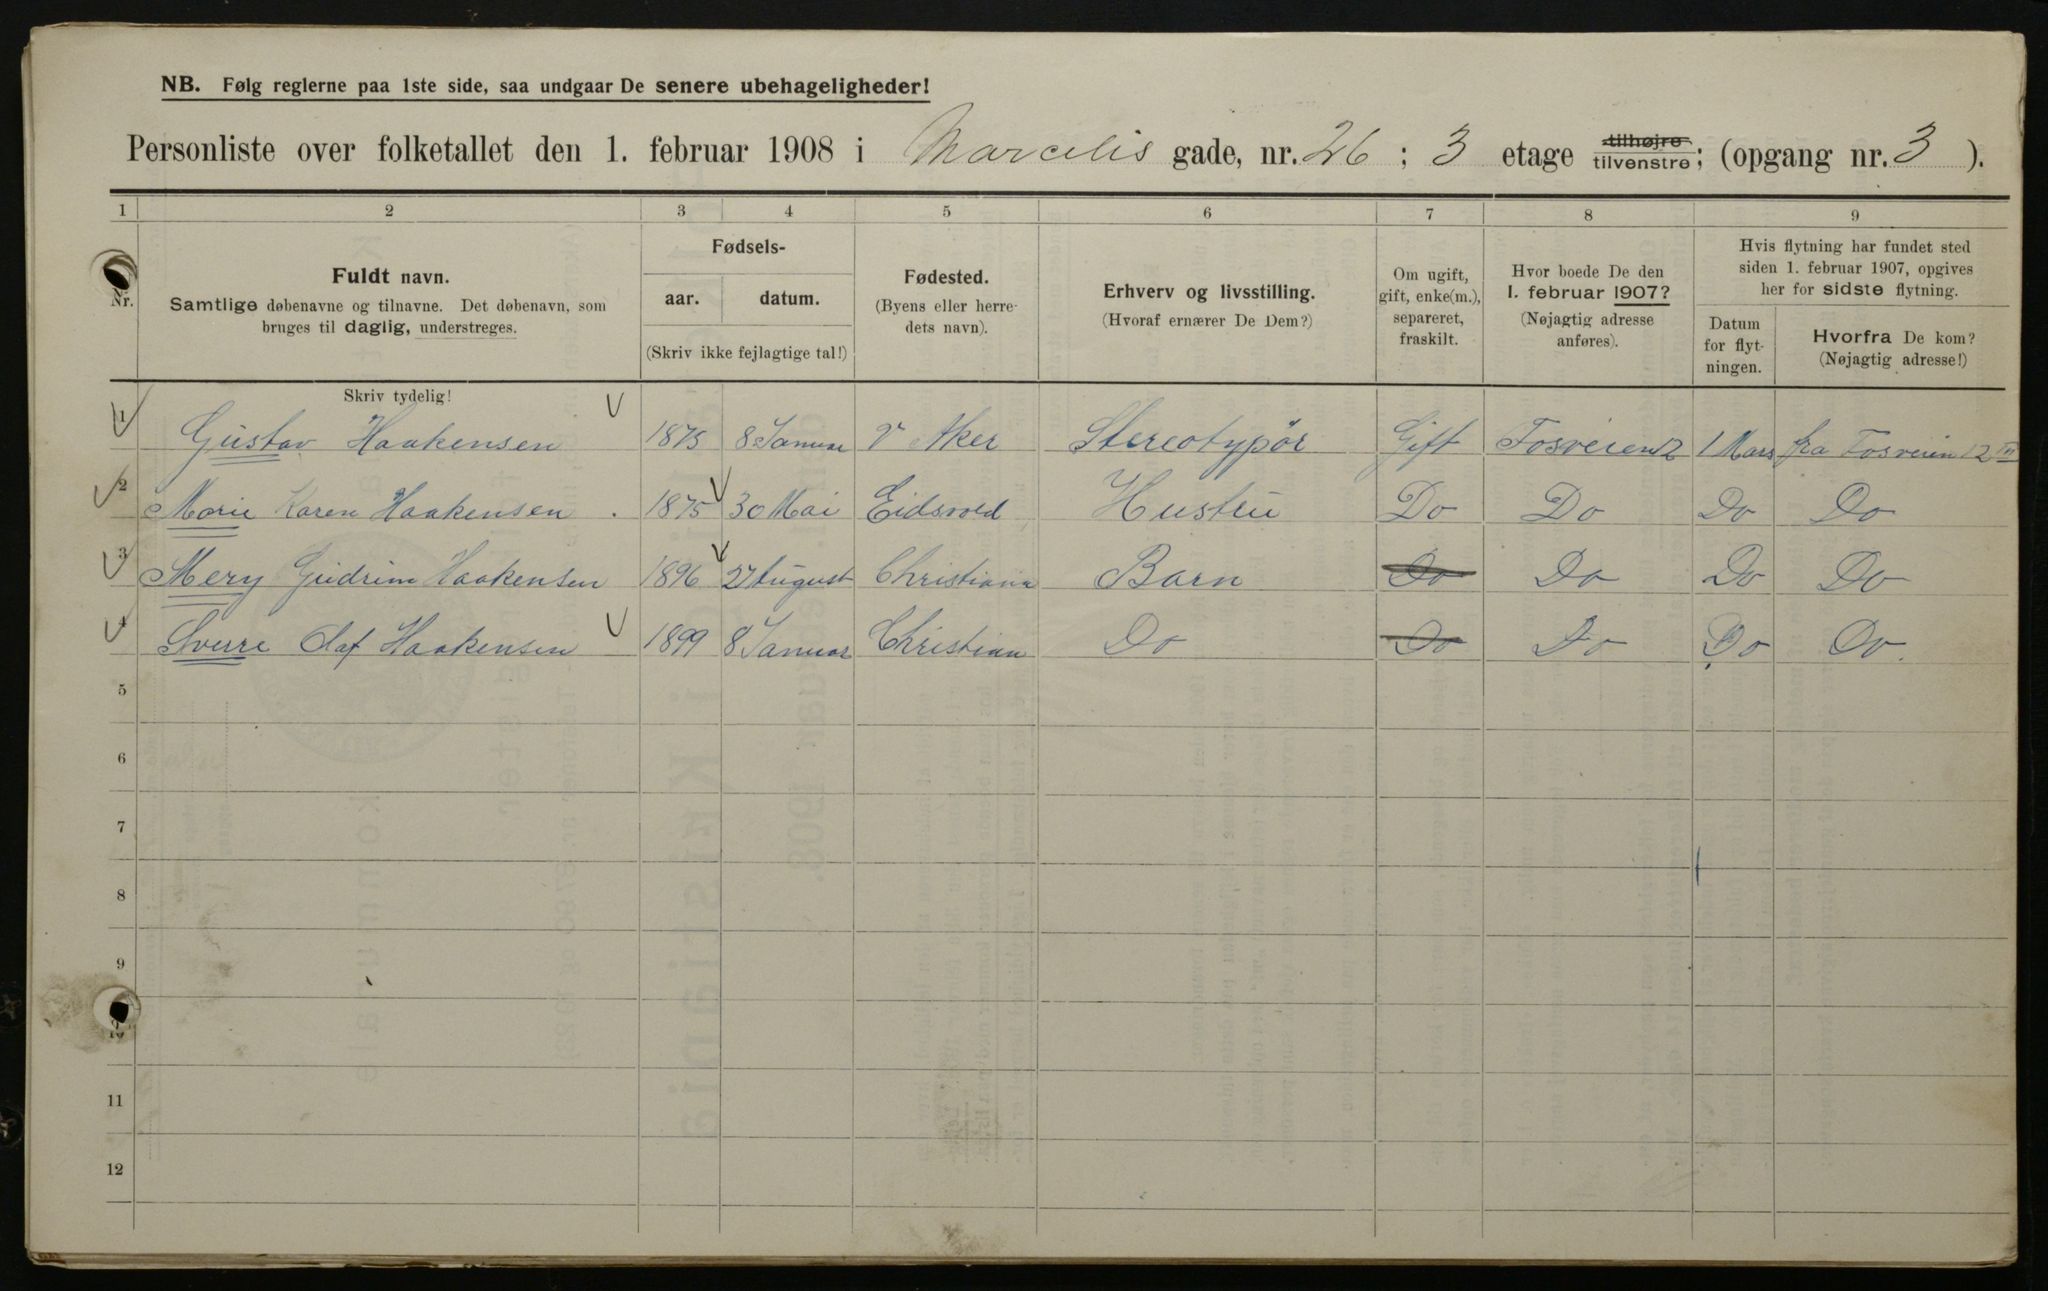 NB. Følg reglerne paa 1ste side, saa undgaar De senere ubehageligheder!
Personliste over folketallet den 1. februar 1908 i Marcelis gade, nr. 26 ; 3 etage tilhøjre tilvenstre; (opgang nr. 3 ).
1 2 3 4 5 6 7 8 9
Nr.
Fuldt navn.
Samtlige døbenavne og tilnavne. Det døbenavn, som
bruges til daglig, understreges.
Fødsels-
aar. datum.
(Skriv ikke fejlagtige tal!)
Fødested.
(Byens eller herre-
dets navn).
Erhverv og livsstilling.
(Hvoraf ernærer De Dem?)
Om ugift,
gift, enke(m.),
separeret,
fraskilt.
Hvor boede De den
1. februar 1907?
(Nøjagtig adresse
anføres).
Hvis flytning har fundet sted
siden 1. februar 1907, opgives
her for sidste flytning.
Datum
for flyt-
ningen.
Hvorfra De kom?
(Nøjagtig adresse!)
Skriv tydelig!
1 Gustav Haakensen 1875 8 Januar V Aker Stereotypör Gift Fosveien 2 1 Mars fra Fosveien 12 III
2 Marie Karen Haakensen 1875 30 Mai Eidsvold Hustru Do Do Do Do
3 Mery Gudrun Haakensen 1896 27 August Christiana Barn Do Do Do Do
4 Sverre Olaf Haakensen 1899 8 Januar Christian Do Do Do Do Do
5
6
7
8
9
10
11
12